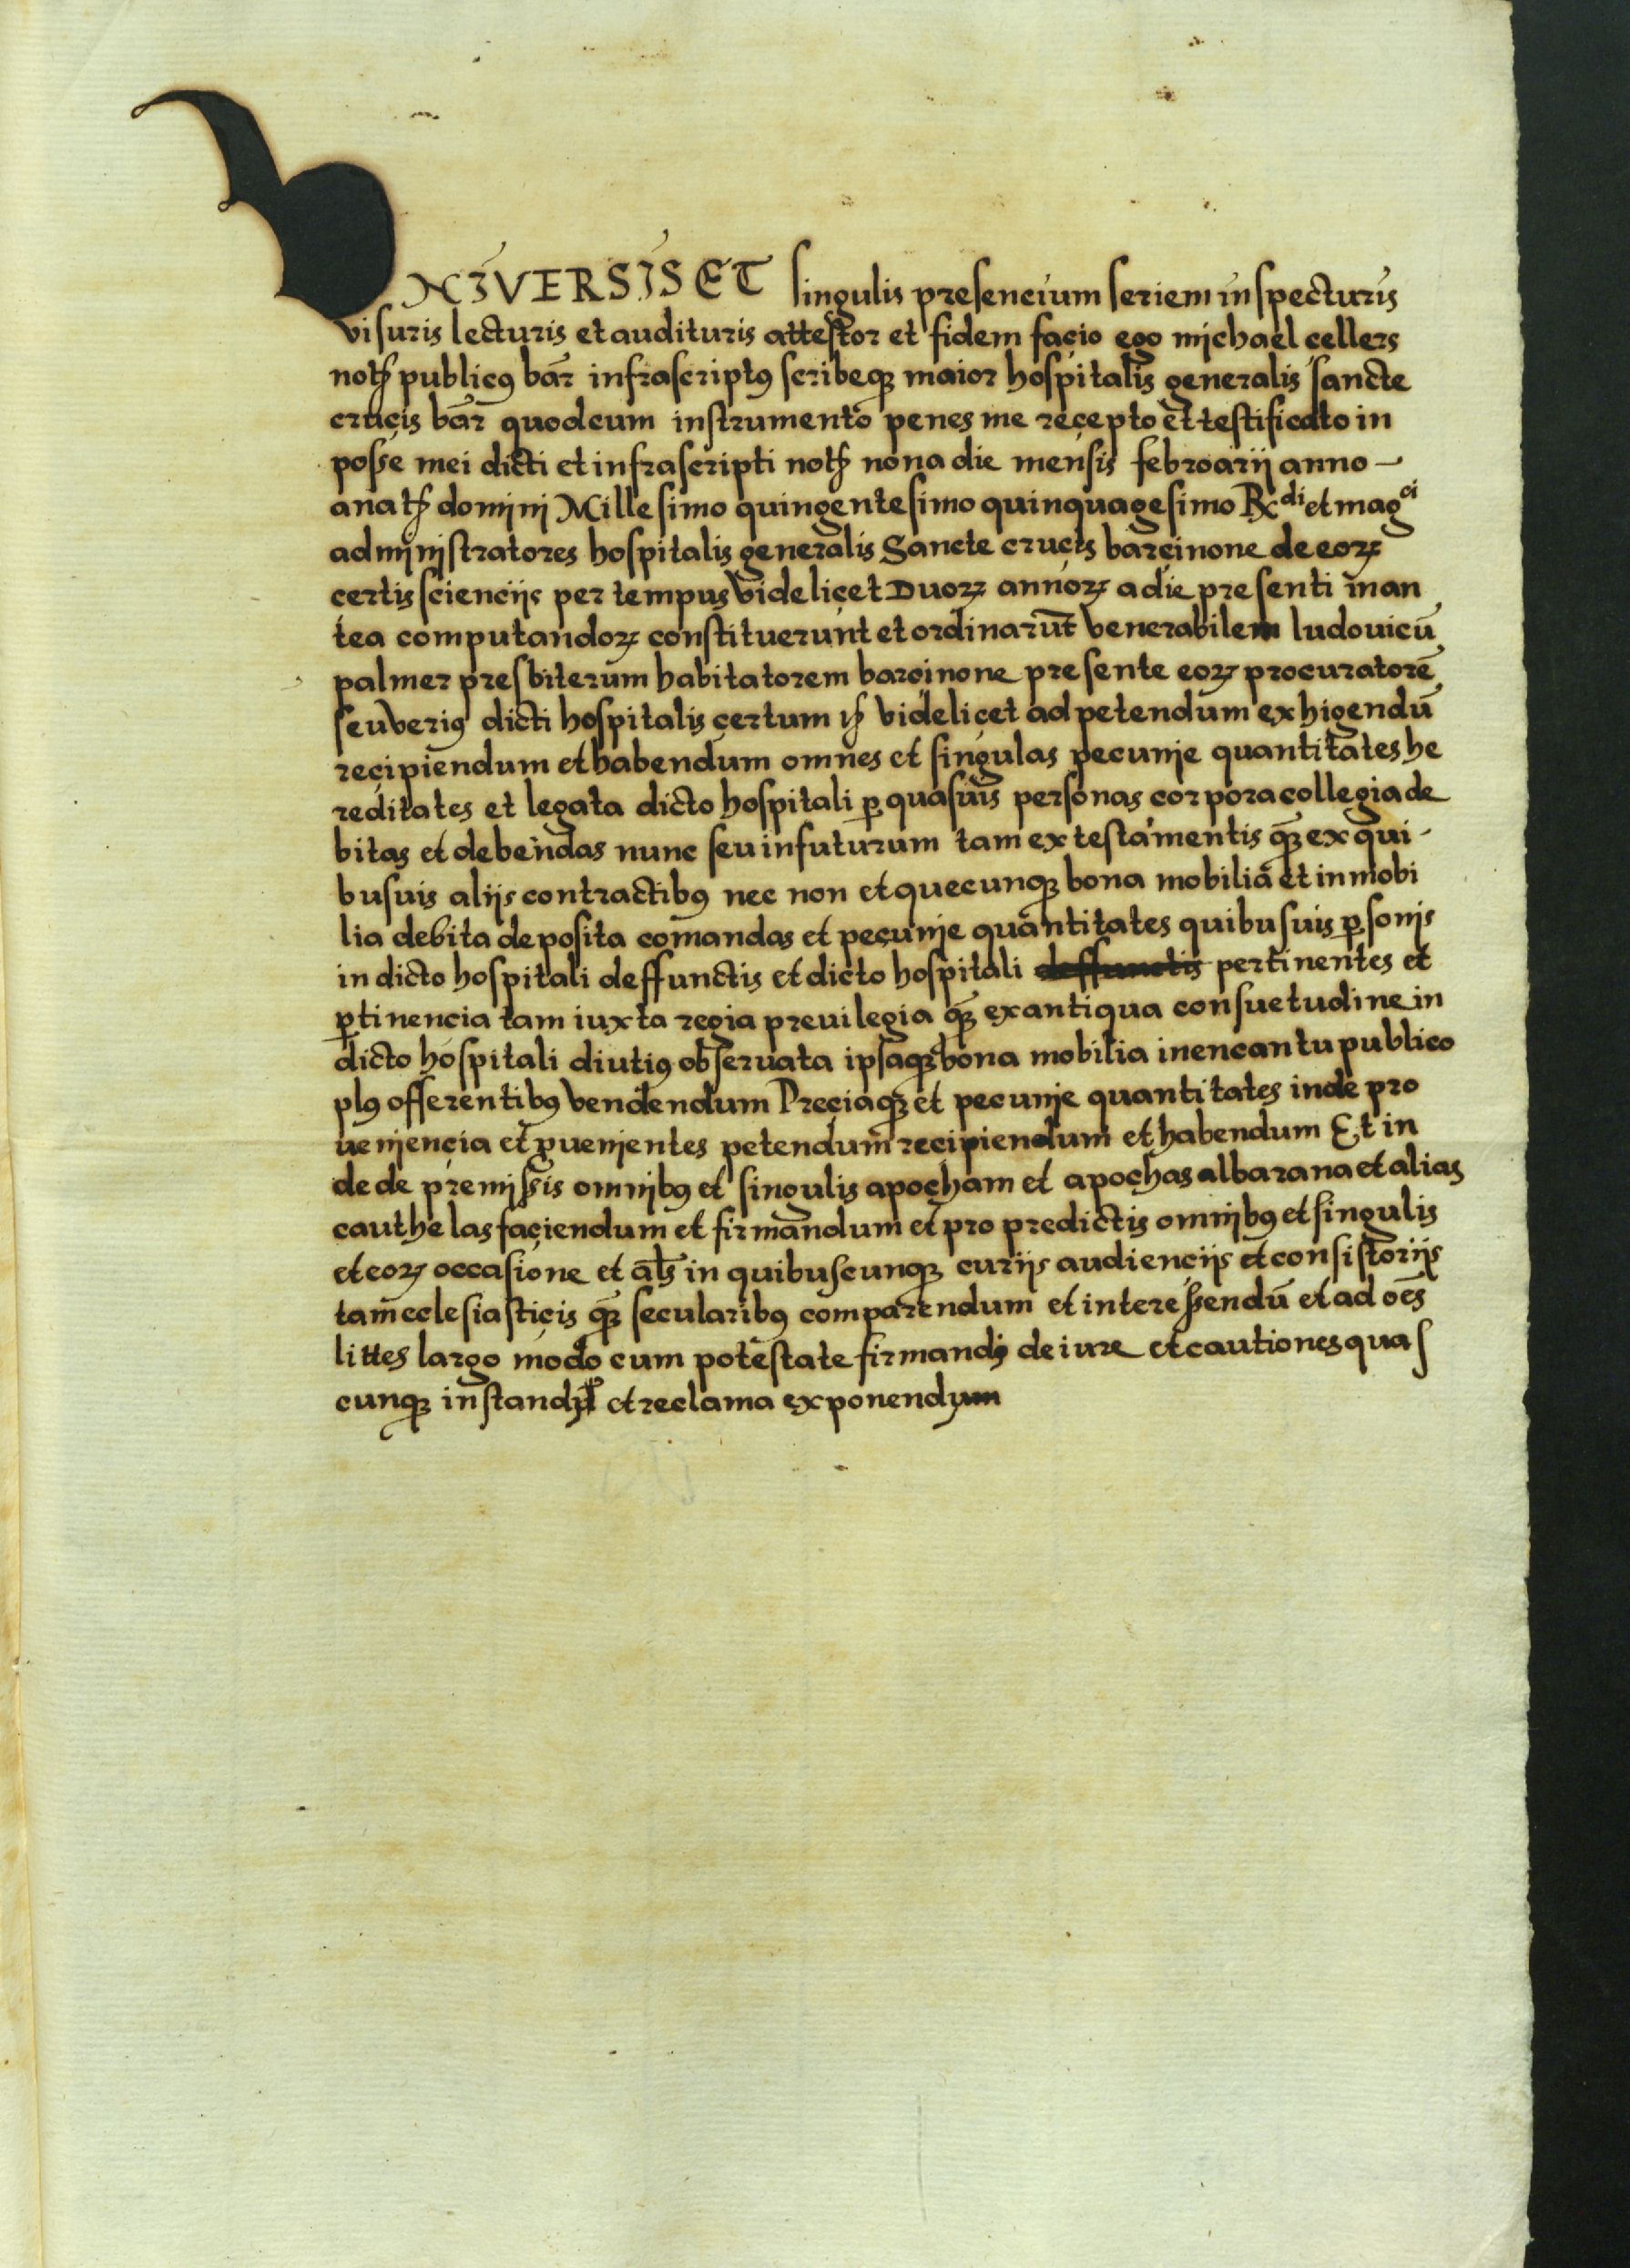 VNIVERSIS ET singulis presencium seriem inspecturis
visuris lecturis et audituris attestor et fidem facio ego michael cellers
notꝭ publicꝰ bār infrascriptꝰ scribeqꝫ maior hospitalis generalis sancte
crucis bār quod cum instrumento penes me recepto et testificato in
posse mei dicti et infrascripti notꝭ nona die mensis febroarij anno —
a natꝭ domini Millesimo quingentesimo quinquagesimo Rᵈⁱ et magᶜⁱ
administratores hospitalis generalis Sancte crucis barcinone de eoꝝ
certis scienciis per tempus videlicet Duoꝝ annoꝝ a die presenti in an
tea computandoꝝ constituerunt et ordinarūt venerabilem ludouicū
palmer presbiterum habitatorem barcinone presente eoꝝ procuratorē
seu veriꝰ dicti hospitalis certum ꝭ videlicet ad petendum exhigendū
recipiendum et habendum omnes et singulas pecunie quantitates he
reditates et legata dicto hospitali ꝑ quasuis personas corpora collegia de
bitas et debendas nunc seu in futurum tam ex testamentis qꝫ ex qui-
busuis aliis contractibꝰ nec non et quecunqꝫ bona mobilia et inmobi
lia debita deposita comandas et pecunie quantitates quibusuis ꝑsonis
in dicto hospitali deffunctis et dicto hospitali deffunctis pertinentes et
ꝑtinencia tam iuxta regia preuilegia qꝫ ex antiqua consuetudine in
dicto hospitali diutiꝰ obseruata ipsaqꝫ bona mobilia in encantu publico
plꝰ offerentibꝰ vendendum Preciaqꝫ et pecunie quantitates inde pro
ueniencia et ꝓuenientes petendum recipiendum et habendum Et in
de de premissis omnibꝰ et singulis apocham et apochas albarana et alias
cauthelas faciendum et firmandum et pro predictis omnibꝰ et singulis
et eoꝝ occasione et āls in quibuscunqꝫ curiis audienciis et consistoriis
tam ecclesiasticis qꝫ secularibꝰ comparendum et interessendū et ad oēs
littes largo modo cum potestate firmandi de iure et cautiones quas
cunqꝫ instandi et reclama exponendum